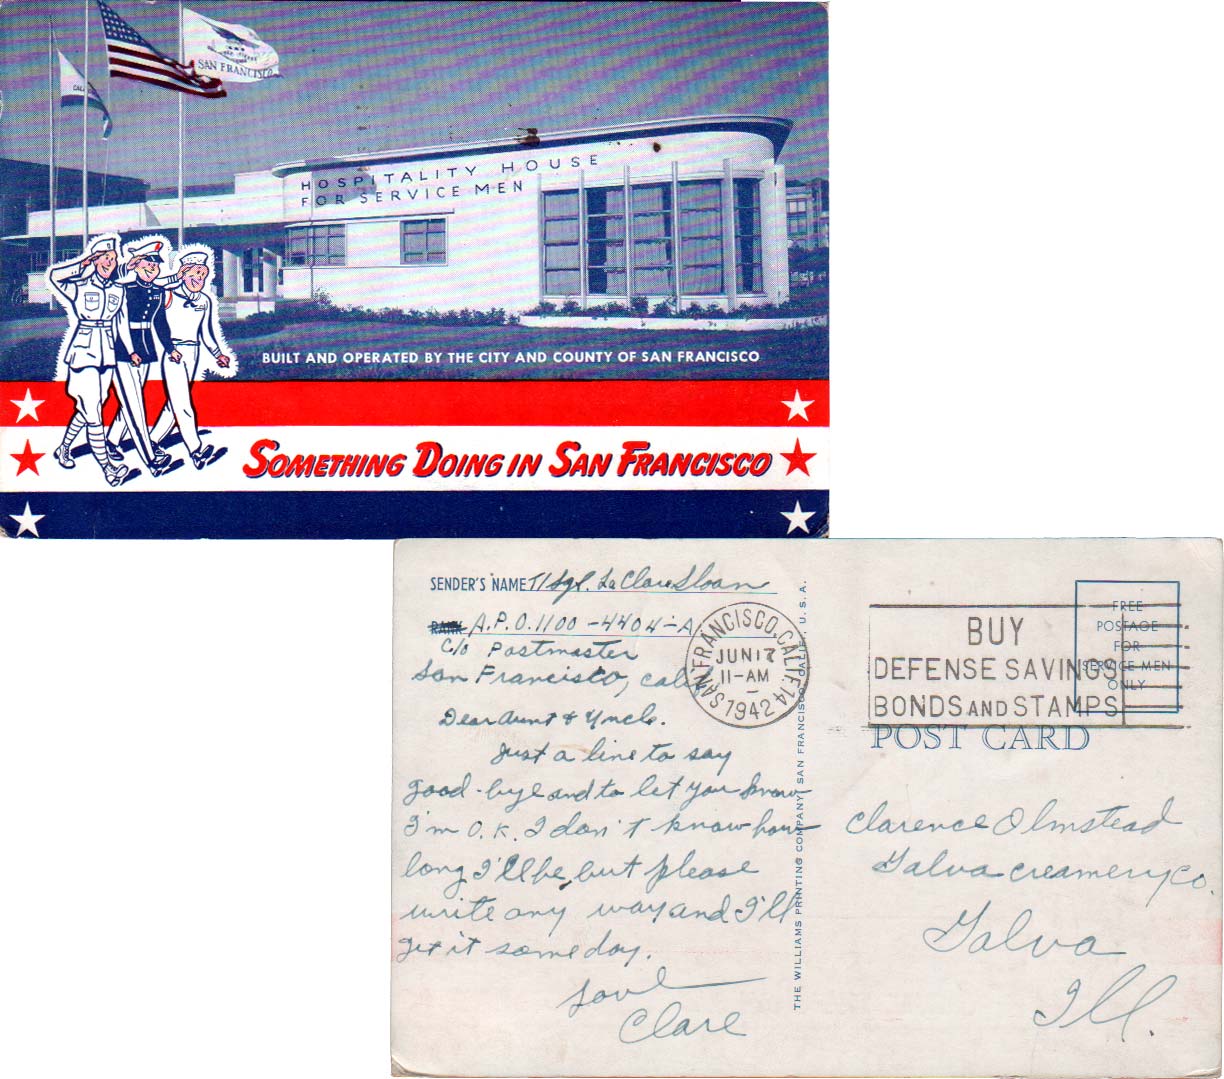 SAN FRANCISCO
HOSPITALITY HOUSE
FOR SERVICE MEN
BUILT AND OPERATED BY THE CITY AND COUNTY OF SAN FRANCISCO
SOMETHING DOING IN SAN FRANCISCO
SENDER'S NAME T/Sgt. La Clare Sloan
RANK A.P.O. 1100 - 4404-A
C/o Postmaster
San Francisco, Calif.
Dear Aunt & Uncle.
Just a line to say
good-bye and to let you know
I'm O.K. I don't know how
long I'll be, but please
write any way and I'll
get it some day.
Love
Clare
SAN FRANCISCO, CALIF. 14
JUN 17
11-AM
1942
BUY
DEFENSE SAVINGS
BONDS AND STAMPS
FREE
POSTAGE
FOR
SERVICE MEN
ONLY
POST CARD
THE WILLIAMS PRINTING COMPANY, SAN FRANCISCO, CALIF., U.S.A.
Clarence Olmstead
Galva Creamery Co.
Galva
Ill.